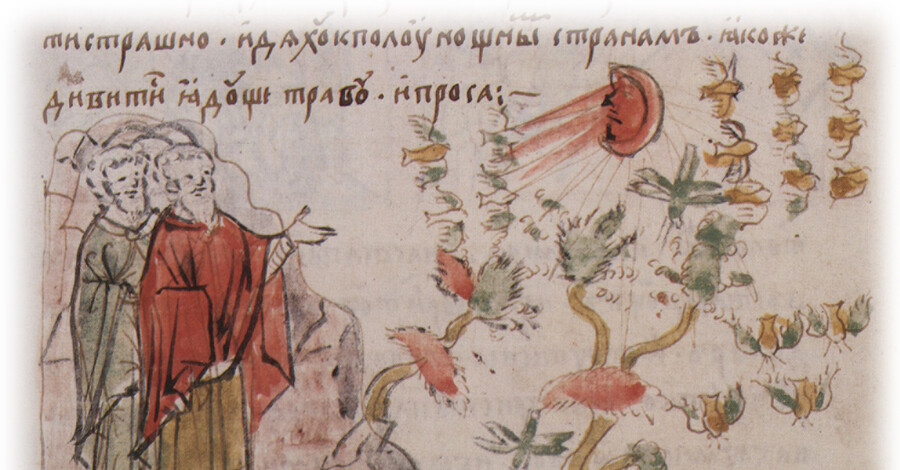 тистрашно · и҆дѧхꙋкполоуношны странамъ · ꙗ҆коже
дивити и҆ ꙗ҆дꙋще травꙋ · и҆проса:~